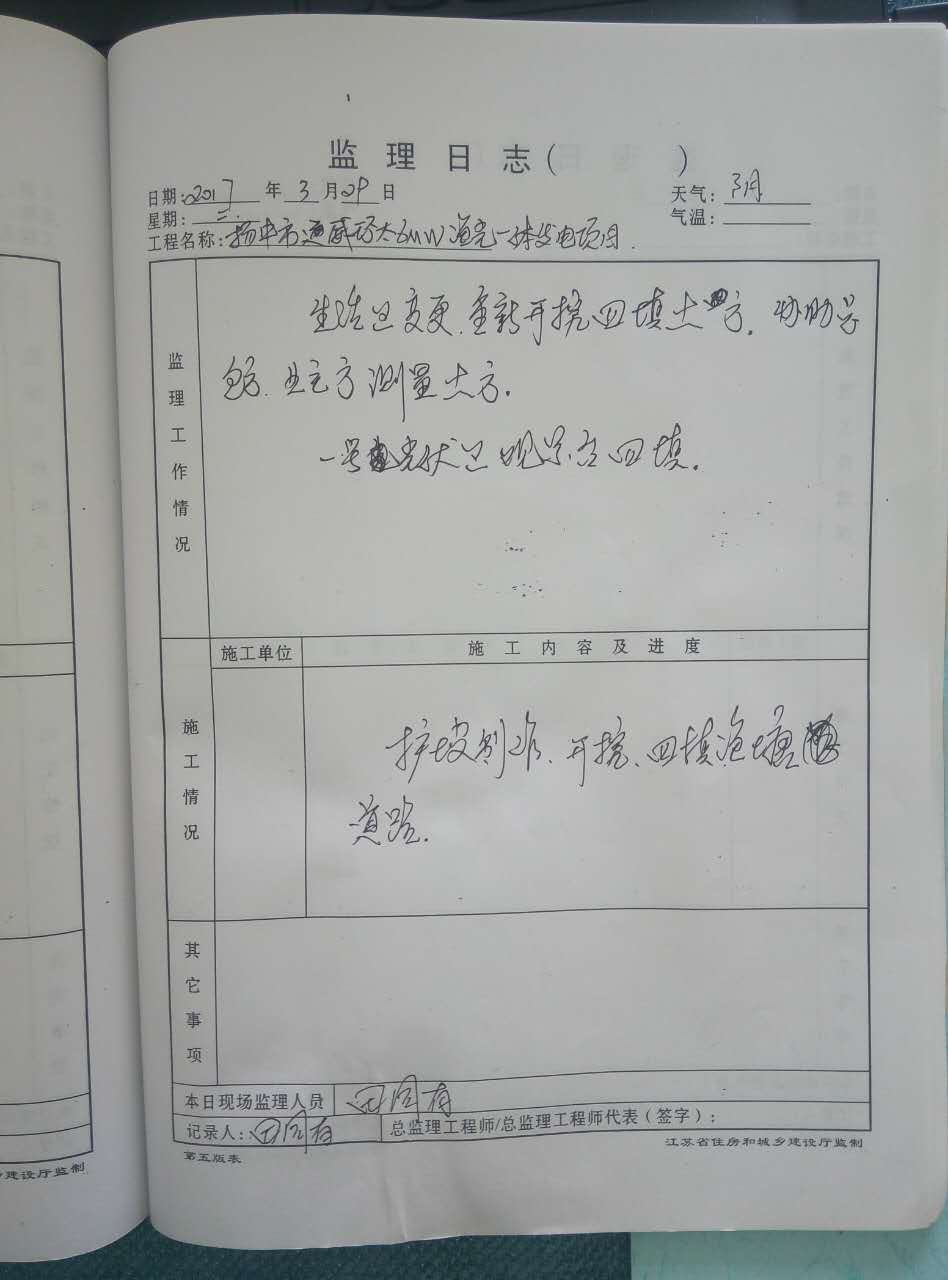 监理日志（ ）
日期：2017年3月29日 天气：阴
星期：二. 气温：
工程名称：扬中市通威 太6MW渔光一体发电项目.
监理工作情况
生活区变更.重新开挖回填土方.协助总
包方.业主方测量土方.
一号 光伏区 回填.
施工单位 施工内容及进度
施工情况
护坡制作、开挖、回填 塘
道路.
其它事项
本日现场监理人员
记录人： 总监理工程师/总监理工程师代表（签字）：
第五版表 江苏省住房和城乡建设厅监制
建设厅监制